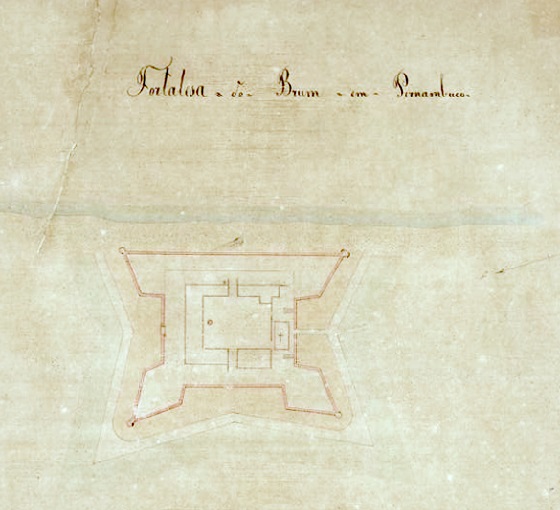 Fortalesa do Brum em Pernambuco